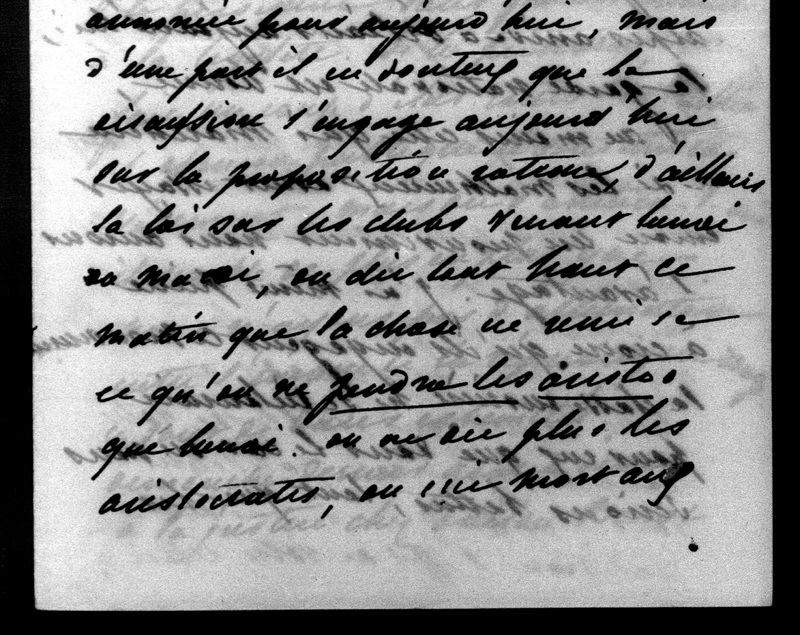 annoncée pour aujourd'hui, mais
d'une part il est douteux que la
discussion s'engage aujourd'hui
sur la proposition rateau, d'ailleurs
la loi sur les clubs venant lundi
ou mardi, on dit tout haut ce
matin que la chose ne sera
et qu'on ne pendra les aristos
que lundi. on ne dit plus les
aristocrates, on dit mort aux